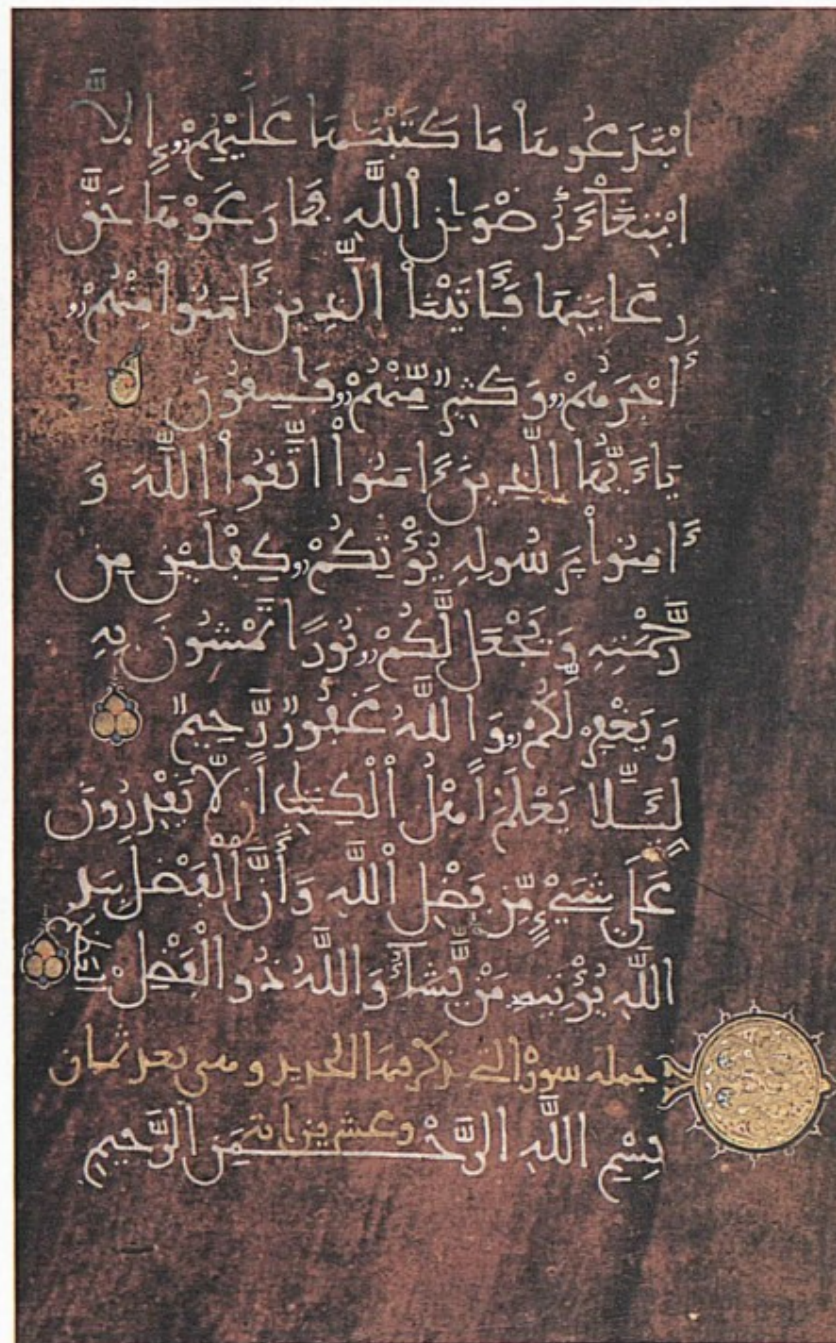 ابْتَدَعُوهَا مَا كَتَبْنَٰهَا عَلَيْهِمْ إِلَّا
ابْتِغَآءَ رِضْوَٰنِ اللَّهِ فَمَا رَعَوْهَا حَقَّ
رِعَايَتِهَا فَـَٔاتَيْنَا الَّذِينَ ءَامَنُوا مِنْهُمْ
أَجْرَهُمْ وَكَثِيرٌ مِّنْهُمْ فَٰسِقُونَ
يَٰٓأَيُّهَا الَّذِينَ ءَامَنُوا اتَّقُوا اللَّهَ وَ
ءَامِنُوا بِرَسُولِهِ يُؤْتِكُمْ كِفْلَيْنِ مِن
رَّحْمَتِهِ وَيَجْعَل لَّكُمْ نُورًا تَمْشُونَ بِهِ
وَيَغْفِرْ لَكُمْ وَاللَّهُ غَفُورٌ رَّحِيمٌ
لِّئَلَّا يَعْلَمَ أَهْلُ الْكِتَٰبِ أَلَّا يَقْدِرُونَ
عَلَىٰ شَيْءٍ مِّن فَضْلِ اللَّهِ وَأَنَّ الْفَضْلَ بِيَدِ
اللَّهِ يُؤْتِيهِ مَن يَّشَآءُ وَاللَّهُ ذُو الْفَضْلِ الْعَظِيمِ
جملة سورة التي فيها الحديد وهي بعد ثمان
وعشرين اية
بِسْمِ اللَّهِ الرَّحْمَٰنِ الرَّحِيمِ